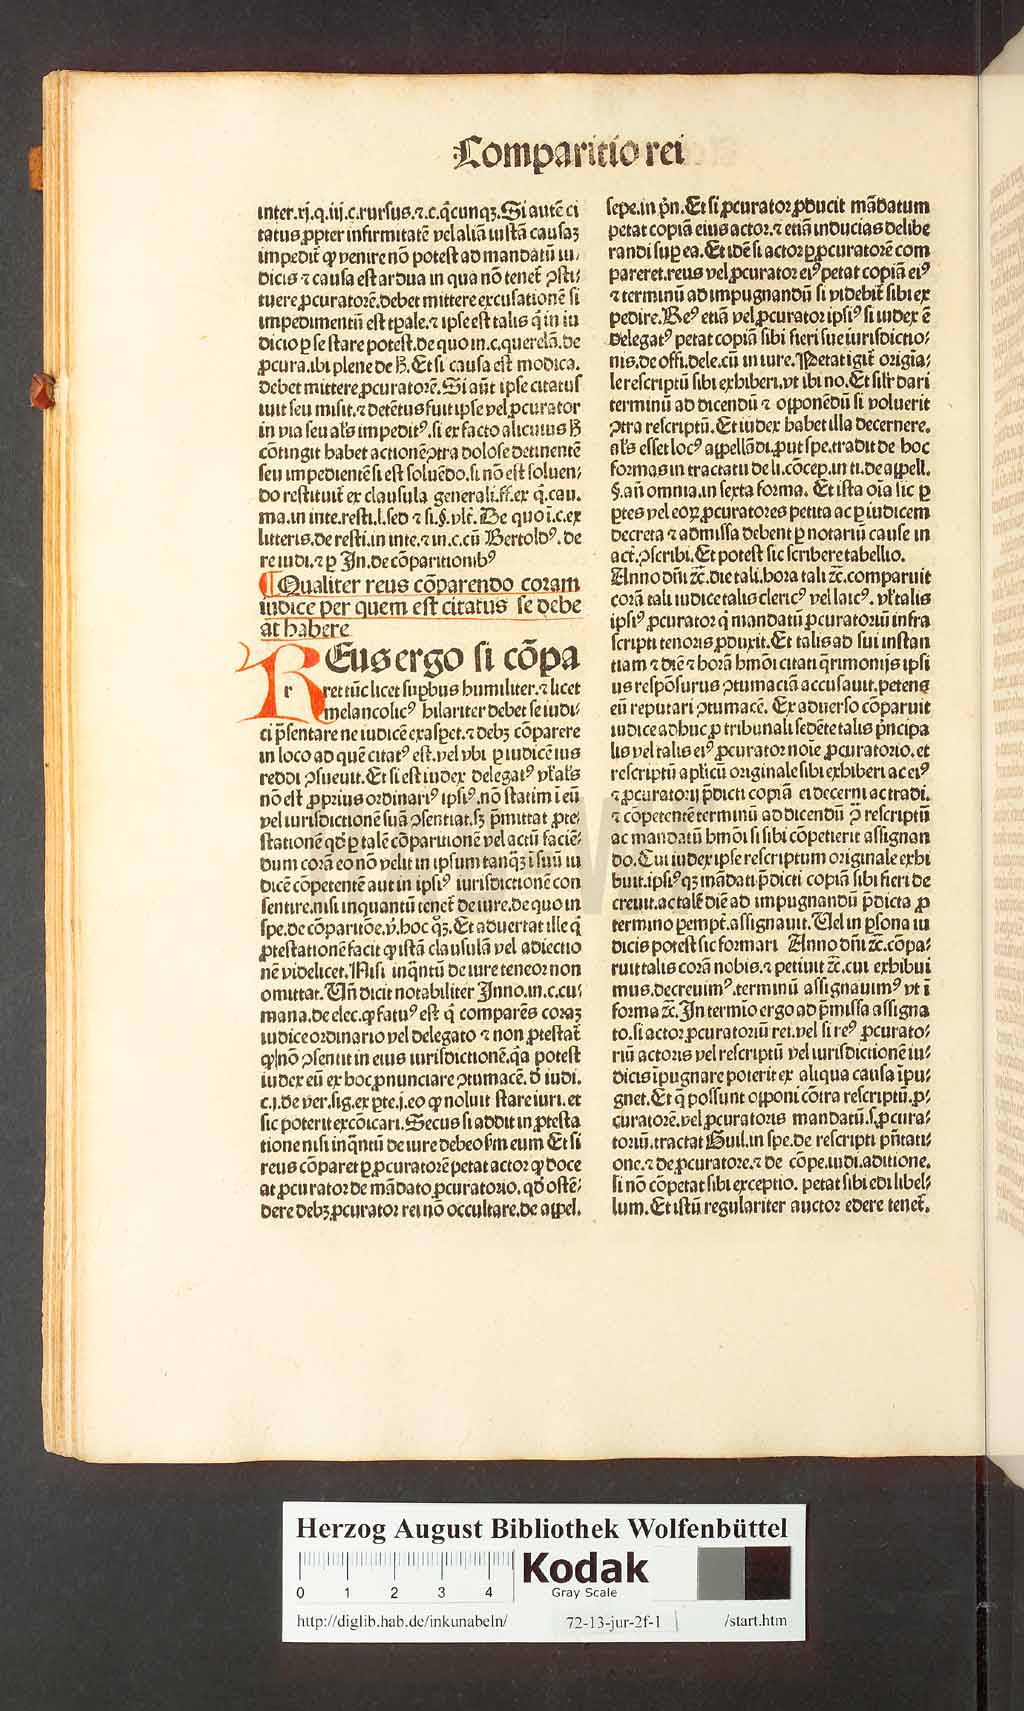 Comparitio rei
inter.xj.q.iij.c.rursus.⁊.c.q̄cunqꝫ. Si autē ci
tatus ꝓpter infirmitatē vel aliā iustā causaꝫ
impedit̄ ꝙ venire nō potest ad mandatū iu⸗
dicis ⁊ causa est ardua in qua nō tenet̄ ꝯsti⸗
tuere ꝓcuratorē.debet mittere excusationē si
impedimentū est tꝑale.⁊ ipse est talis q̄ in iu
dicio ꝑ se stare potest.de quo in.c.querelā.de
ꝓcura.ibi plene de h̄. Et si causa est modica.
debet mittere ꝓcuratorē. Si aūt ipse citatus
iuit seu misit.⁊ detētus fuit ipse vel ꝓcurator
in via seu al̓s impeditꝰ.si ex facto alicuius h̄
cōtingit habet actionē ꝯtra dolose detinentē
seu impedientē si est soluēdo.si nō est soluen⸗
do restituit̄ ex clausula generali.ff.ex q̄.cau.
ma.in inte.resti.l.sed ⁊ si.§.vlt̄. De quo ī.c.ex
litteris.de resti.in inte.⁊ in.c.cū Bertoldꝰ.de
re iudi.⁊ ꝑ In.de cōparitionibꝰ
¶ Qualiter reus cōparendo coram
iudice per quem est citatus se debe
at habere
REus ergo si cōpa
r ret tūc licet suꝑbus humiliter.⁊ licet
melancolicꝰ hilariter debet se iudi⸗
ci p̄sentare ne iudicē exasꝑet.⁊ debꝫ cōparere
in loco ad quē citatꝰ est.vel vbi ꝑ iudicē ius
reddi ꝯsueuit. Et si est iudex delegatꝰ vl̓ al̓s
nō est ꝓprius ordinariꝰ ipsiꝰ.nō statim ī eū
vel iurisdictionē suā ꝯsentiat.sꝫ p̄mittat ꝓte⸗
stationē qd̓ ꝑ talē cōparitionē vel actū faciē⸗
dum corā eo nō velit in ipsum tanq̄ꝫ ī suū iu
dicē cōpetentē aut in ipsiꝰ iurisdictionē con
sentire.nisi inquantū tenet̄ de iure.de quo in
spe.de cōparitōe.ꝟ.hoc qꝫ. Et aduertat ille q̄
ꝓtestationē facit ꝙ istā clausulā vel adiectio
nē videlicet. Nisi inq̄ntū de iure teneor non
omittat. Vn̄ dicit notabiliter Inno.in.c.cu⸗
mana.de elec.ꝙ fatuꝰ est q̄ comparēs coraꝫ
iudice ordinario vel delegato ⁊ non ꝓtestat̄
ꝙ nō ꝯsentit in eius iurisdictionē.q̄a potest
iudex eū ex hoc ꝓnunciare ꝯtumacē. d̓ iudi.
c.j.de ver.sig.ex ꝑte.j.eo ꝙ noluit stare iuri.et
sic poterit excōicari. Secus si addit in ꝓtesta
tione nisi inq̄ntū de iure debeo fm̄ eum Et si
reus cōparet ꝑ ꝓcuratorē petat actor ꝙ doce
at ꝓcurator de mādato ꝓcuratorio. qd̓ ostē⸗
dere debꝫ ꝓcurator rei nō occultare.de appel.
sepe.in p̄n. Et si ꝓcurator ꝓducit mādatum
petat copiā eius actor.⁊ etiā inducias delibe
randi suꝑ ea. Et idē si actor ꝑ ꝓcuratorē com
pareret.reus vel ꝓcurator eiꝰ petat copiā eiꝰ
⁊ terminū ad impugnandū si videbit̄ sibi ex
pedire. Reꝰ etiā vel ꝓcurator ipsiꝰ si iudex ē
delegatꝰ petat copiā sibi fieri sue iurisdictio⸗
nis.de offi.dele.cū in iure. Petat igit̄ origīa⸗
le rescriptū sibi exhiberi.vt ibi no. Et sil̓r dari
terminū ad dicendū ⁊ opponēdū si voluerit
ꝯtra rescriptū. Et iudex habet illa decernere.
al̓s esset locꝰ appellādi.ꝓut spe.tradit de hoc
formas in tractatu de li.cōcep.in ti.de appell.
§.an̄ omnia.in sexta forma. Et ista oīa sic ꝑ
ꝑtes vel eoꝝ ꝓcuratores petita ac ꝑ iudicem
decreta ⁊ admissa debent ꝑ notariū cause in
act̄.ꝯscribi. Et potest sic scribere tabellio.
Anno dn̄i ⁊c̄.die tali.hora tali ⁊c̄.comparuit
corā tali iudice talis clericꝰ vel laicꝰ. vl̓ talis
ipsiꝰ ꝓcurator q̄ mandatū ꝓcuratoriū infra
scripti tenoris ꝓduxit. Et talis ad sui instan
tiam ⁊ diē ⁊ horā hmōi citati q̄rimonijs ipsi
us respōsurus ꝯtumaciā accusauit.petens
eū reputari ꝯtumacē. Ex aduerso cōparuit
iudice adhuc ꝓ tribunali sedēte talis p̄ncipa
lis vel talis eiꝰ ꝓcurator noīe ꝓcuratorio.et
rescriptū aplicū originale sibi exhiberi ac eiꝰ
⁊ ꝓcuratorij p̄dicti copiā ei decerni ac tradi.
⁊ cōpetentē terminū ad dicendū ꝯ̄ rescriptū
ac mandatū hmōi si sibi cōpetierit assignan
do. Cui iudex ipse rescriptum originale exhi
buit.ipsiꝰqꝫ mādati p̄dicti copiā sibi fieri de
creuit.ac talē diē ad impugnandū p̄dicta ꝓ
termino ꝑempt̄.assignauit. Vel in ꝑsona iu
dicis potest sic formari Anno dn̄i ⁊c̄.cōpa⸗
ruit talis corā nobis.⁊ petiuit ⁊c̄.cui exhibui
mus.decreuimꝰ.terminū assignauimꝰ vt ī
forma ⁊c̄. In termīo ergo ad p̄missa assigna
to.si actor ꝓcuratoriū rei.vel si reꝰ ꝓcurato⸗
riū actoris vel rescriptū vel iurisdictionē iu⸗
dicis īpugnare poterit ex aliqua causa īpu⸗
gnet. Et q̄ possunt opponi cōtra rescriptū.ꝓ⸗
curatorē.vel ꝓcuratoris mandatū.s.ꝓcura⸗
toriū.tractat Guil.in spe.de rescripti pn̄tati⸗
one.⁊ de ꝓcuratore.⁊ de cōpe.iudi.aditione.
si nō cōpetat sibi exceptio. petat sibi edi libel⸗
lum. Et istū regulariter auctor edere tenet̄.
Herzog August Bibliothek Wolfenbüttel
0 1 2 3 4
Kodak
Gray Scale
http://diglib.hab.de/inkunabeln/ 72-13-jur-2f-1 /start.htm